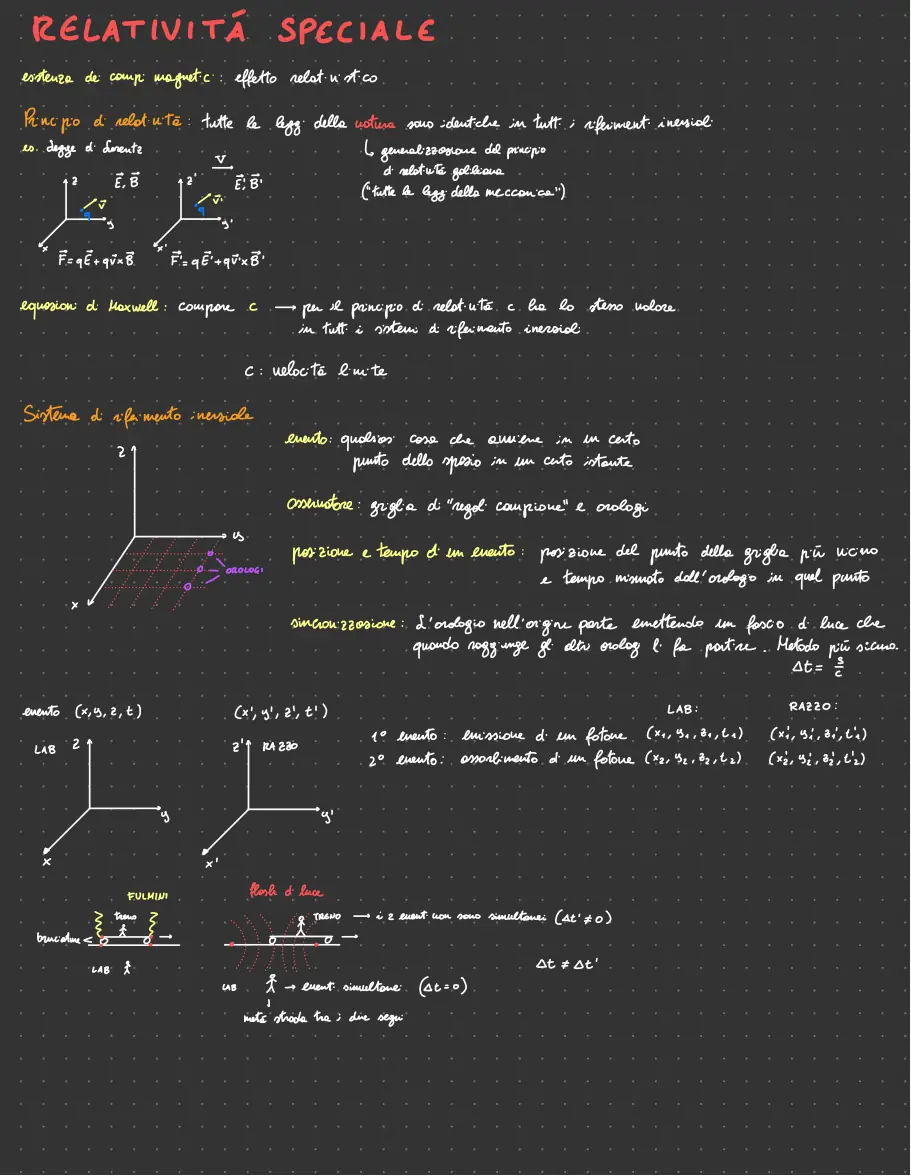 RELATIVITÁ SPECIALE
esistenza dei campi magnetici: effetto relativistico
Principio di relatività: tutte le leggi della natura sono identiche in tutti i riferimenti inerziali
es. legge di Lorentz
↳ generalizzazione del principio
di relatività galileiana
("tutte le leggi della meccanica")
v
z E, B z' E', B'
v v'
q q
y y'
x x'
F = qE + qv×B F' = qE' + qv'×B'
equazioni di Maxwell: compare c → per il principio di relatività c ha lo stesso valore
in tutti i sistemi di riferimento inerziali
c: velocità limite
Sistema di riferimento inerziale
z
y
x
OROLOGI
evento: qualsiasi cosa che avviene in un certo
punto dello spazio in un certo istante
osservatore: griglia di "regoli campione" e orologi
posizione e tempo di un evento: posizione del punto della griglia più vicino
e tempo misurato dall'orologio in quel punto
sincronizzazione: L'orologio nell'origine parte emettendo un fascio di luce che
quando raggiunge gli altri orologi li fa partire. Metodo più sicuro.
Δt = s/c
evento (x, y, z, t) (x', y', z', t')
LAB: RAZZO:
1° evento: emissione di un fotone (x₁, y₁, z₁, t₁) (x'₁, y'₁, z'₁, t'₁)
2° evento: assorbimento di un fotone (x₂, y₂, z₂, t₂) (x'₂, y'₂, z'₂, t'₂)
LAB z z' RAZZO
y y'
x x'
FULMINI
treno
bruciature <
LAB
flash di luce
TRENO → i 2 eventi non sono simultanei (Δt' ≠ 0)
Δt ≠ Δt'
LAB → eventi simultanei (Δt = 0)
metà strada tra i due segni